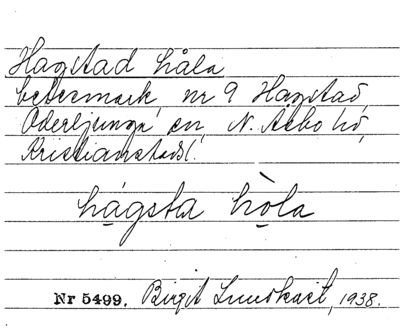 Hagstad håla
betesmark, nr 9 Hagstad,
Oderljunga sn, N. Åsbo hd,
Kristianstads l.
hágsta hòla
Nr 5499. Birgit Lundkvist, 1938.